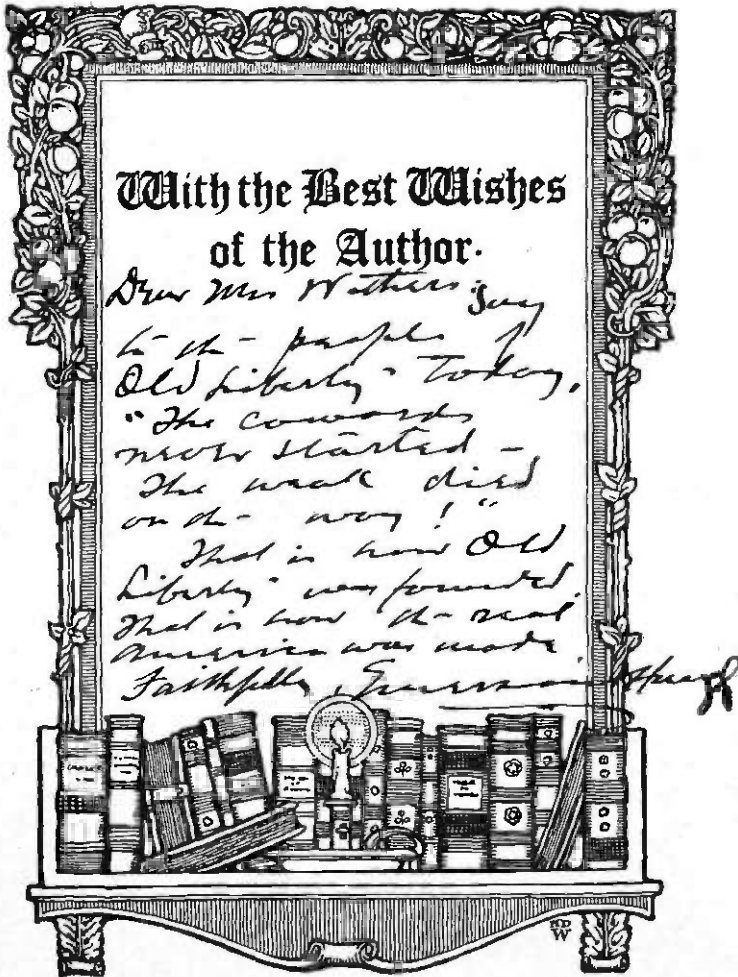 With the Best Wishes
of the Author.
Dear Mrs Withers: Say
to the people of
Old Liberty" Today,
"The cowards
never started -
The weak died
on the way!"
That is how Old
Liberty" was founded.
That is how the real
America was made
Faithfully, Emerson Hough
HD
W